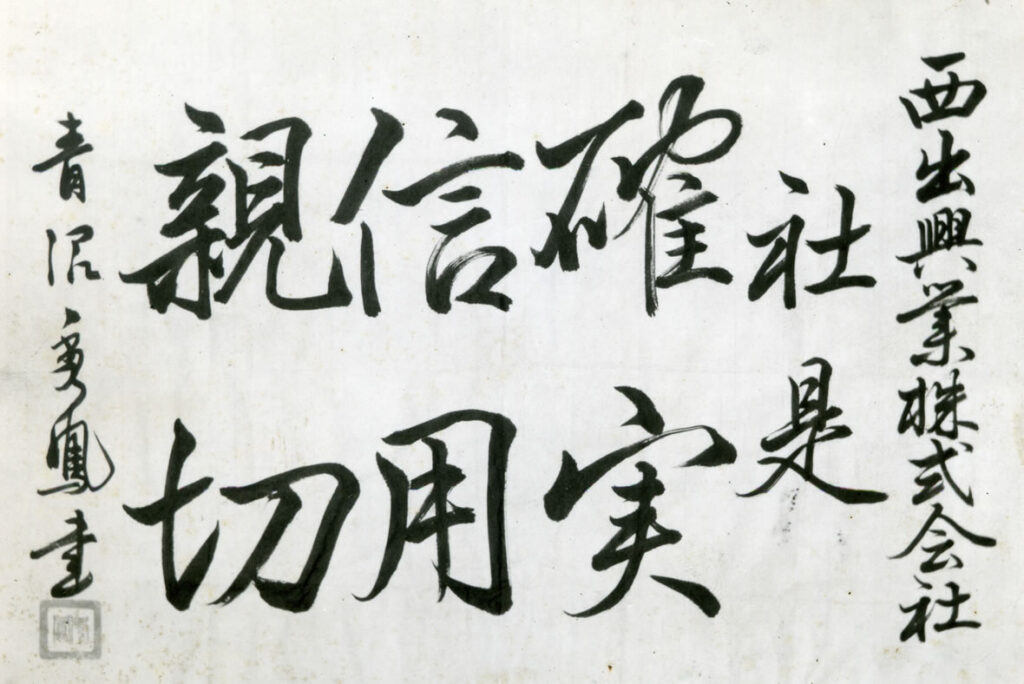 西出興業株式会社
社是
確実
信用
親切
青沼秀鳳書